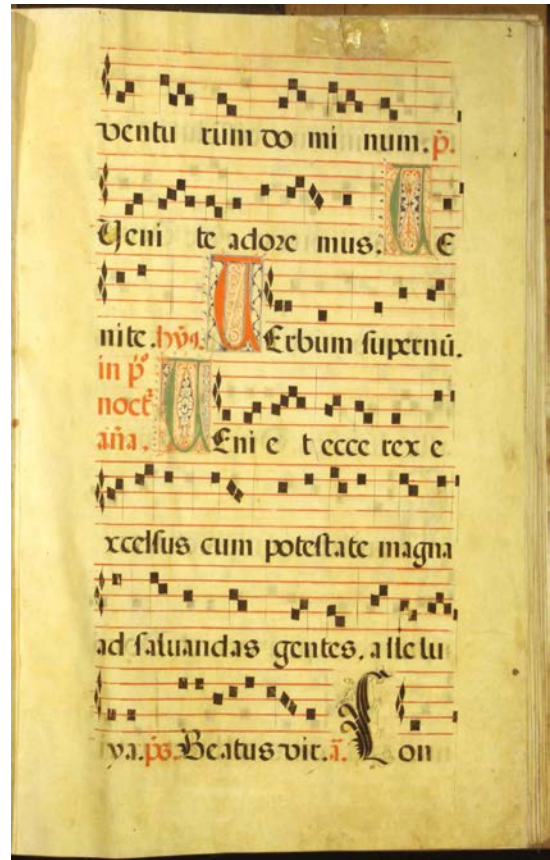 2
ventu rum do mi num. p̃.
Veni te adore mus. VE
nite. hỹs. VErbum supernũ.
in p̊
noct᷑
añã. VEni e t ecce rex e
xcelsus cum potestate magna
ad saluandas gentes. a lle lu
ya. p̃s. Beatus vir. ã. Con